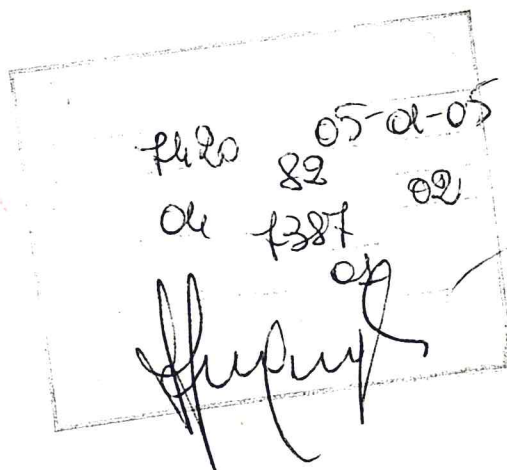 7420 05-01-05
82 02
04 7387
07